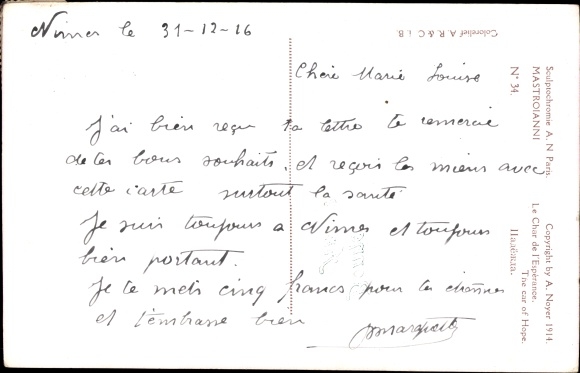 Nimes le 31-12-16
Chère Marie Louise
J'ai bien reçu ta lettre te remercie
de tes bons souhaits, et reçois les miens avec
cette carte surtout la santé
Je suis toujours a Nimes et toujours
bien portant.
Je te mets cinq francs pour tes
et t'embrasse bien
Colorelief A. R. & C. i. B.
Sculptochrome A. N Paris.
MASTROIANNI
N° 34.
Copyright by A. Noyer 1914.
Le Char de l'Espérance.
The car of Hope.